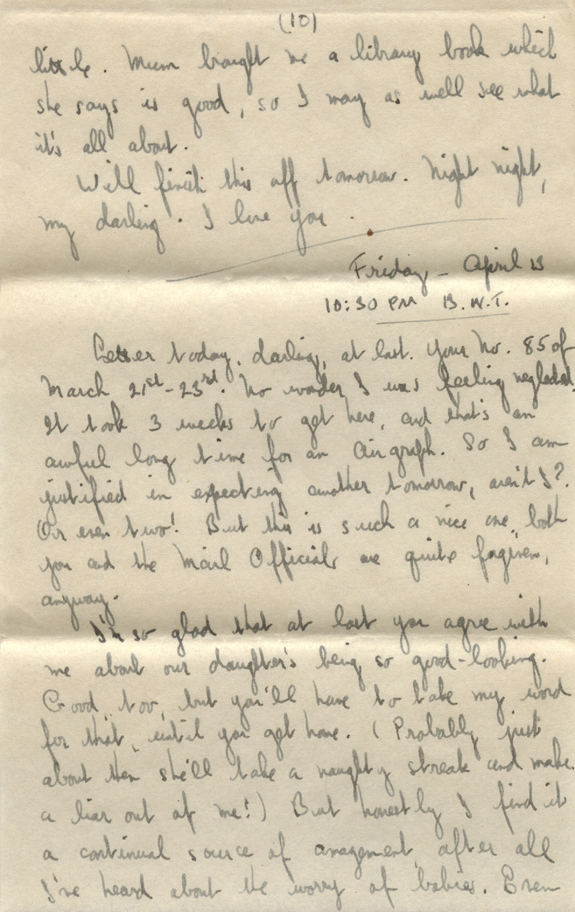 (10)
little. Mum brought me a library book which
she says is good, so I may as well see what
it's all about.
Will finish this off tomorrow. Night night,
my darling. I love you.
Friday - April 13
10:30 PM B.W.T.
Letter today, darling, at last. Your No. 85 of
March 21st-23rd. No wonder I was feeling neglected.
It took 3 weeks to get here, and that's an
awful long time for an Airgraph. So I am
justified in expecting another tomorrow, aren't I?
Or even two! But this is such a nice one, both
you and the Mail Officials are quite forgiven,
anyway.
I'm so glad that at last you agree with
me about our daughter's being so good-looking.
Good, too, but you'll have to take my word
for that, until you get home. (Probably just
about then she'll take a naughty streak and make
a liar out of me!) But honestly I find it
a continual source of amazement, after all
I've heard about the worry of babies. Even